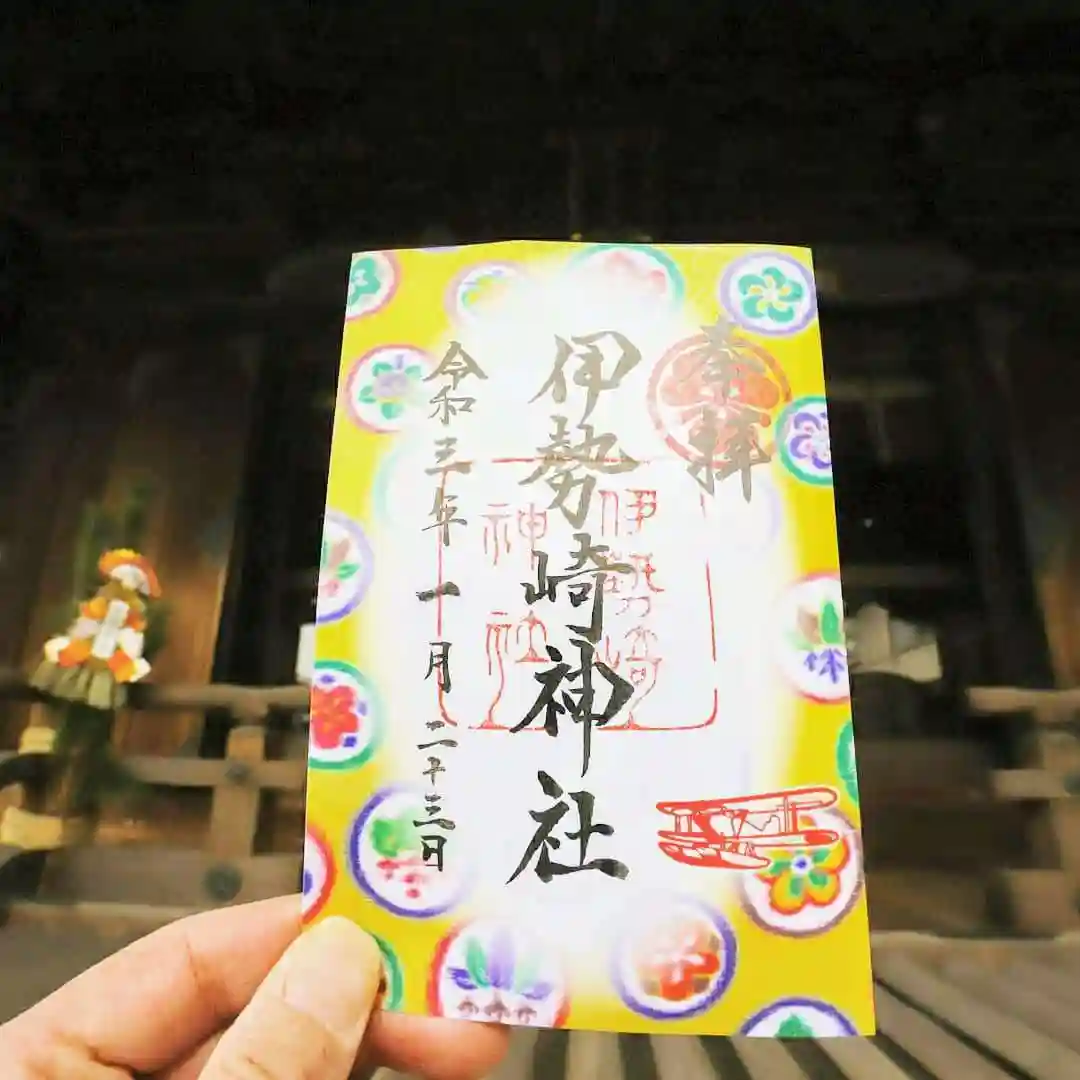 奉拝
伊勢崎神社
伊勢崎
神社
令和三年一月二十三日